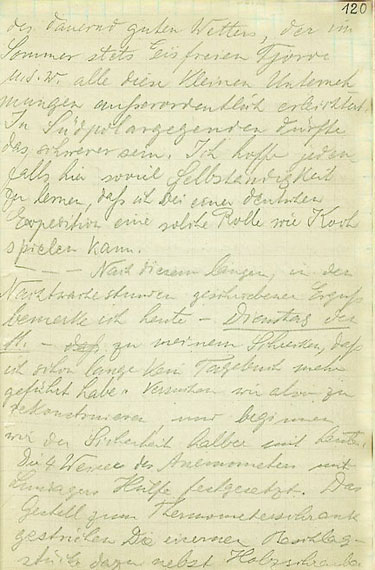 120
des dauernd guten Wetters, der im
Sommer stets Eisfreien Fjorde
u.s.w. alle diese kleinen Unterneh-
mungen außerordentlich erleichtert.
In Südpolargegenden dürfte
das schwerer sein. Ich hoffe jeden-
falls hier soviel Selbständigkeit
zu lernen, daß ich bei einer deutschen
Expedition eine solche Rolle wie Koch
spielen kann.
— — — Nach diesem langen, in den
Nachtwachestunden geschriebener Erguß
bemerke ich heute – Dienstag der
– daß zu meinem Schrecken, daß
ich schon lange kein Tagebuch mehr
geführt habe. Versuchen wir also zu
rekonstruieren und beginnen
wir der Sicherheit halber mit heute.
Die 4 des Anemometers mit
Hülfe festgesetzt. Das
Gestell zum Thermometerschrank
gestrichen Die eisernen Beschlag-
stücke dazu nebst Holzschrauben